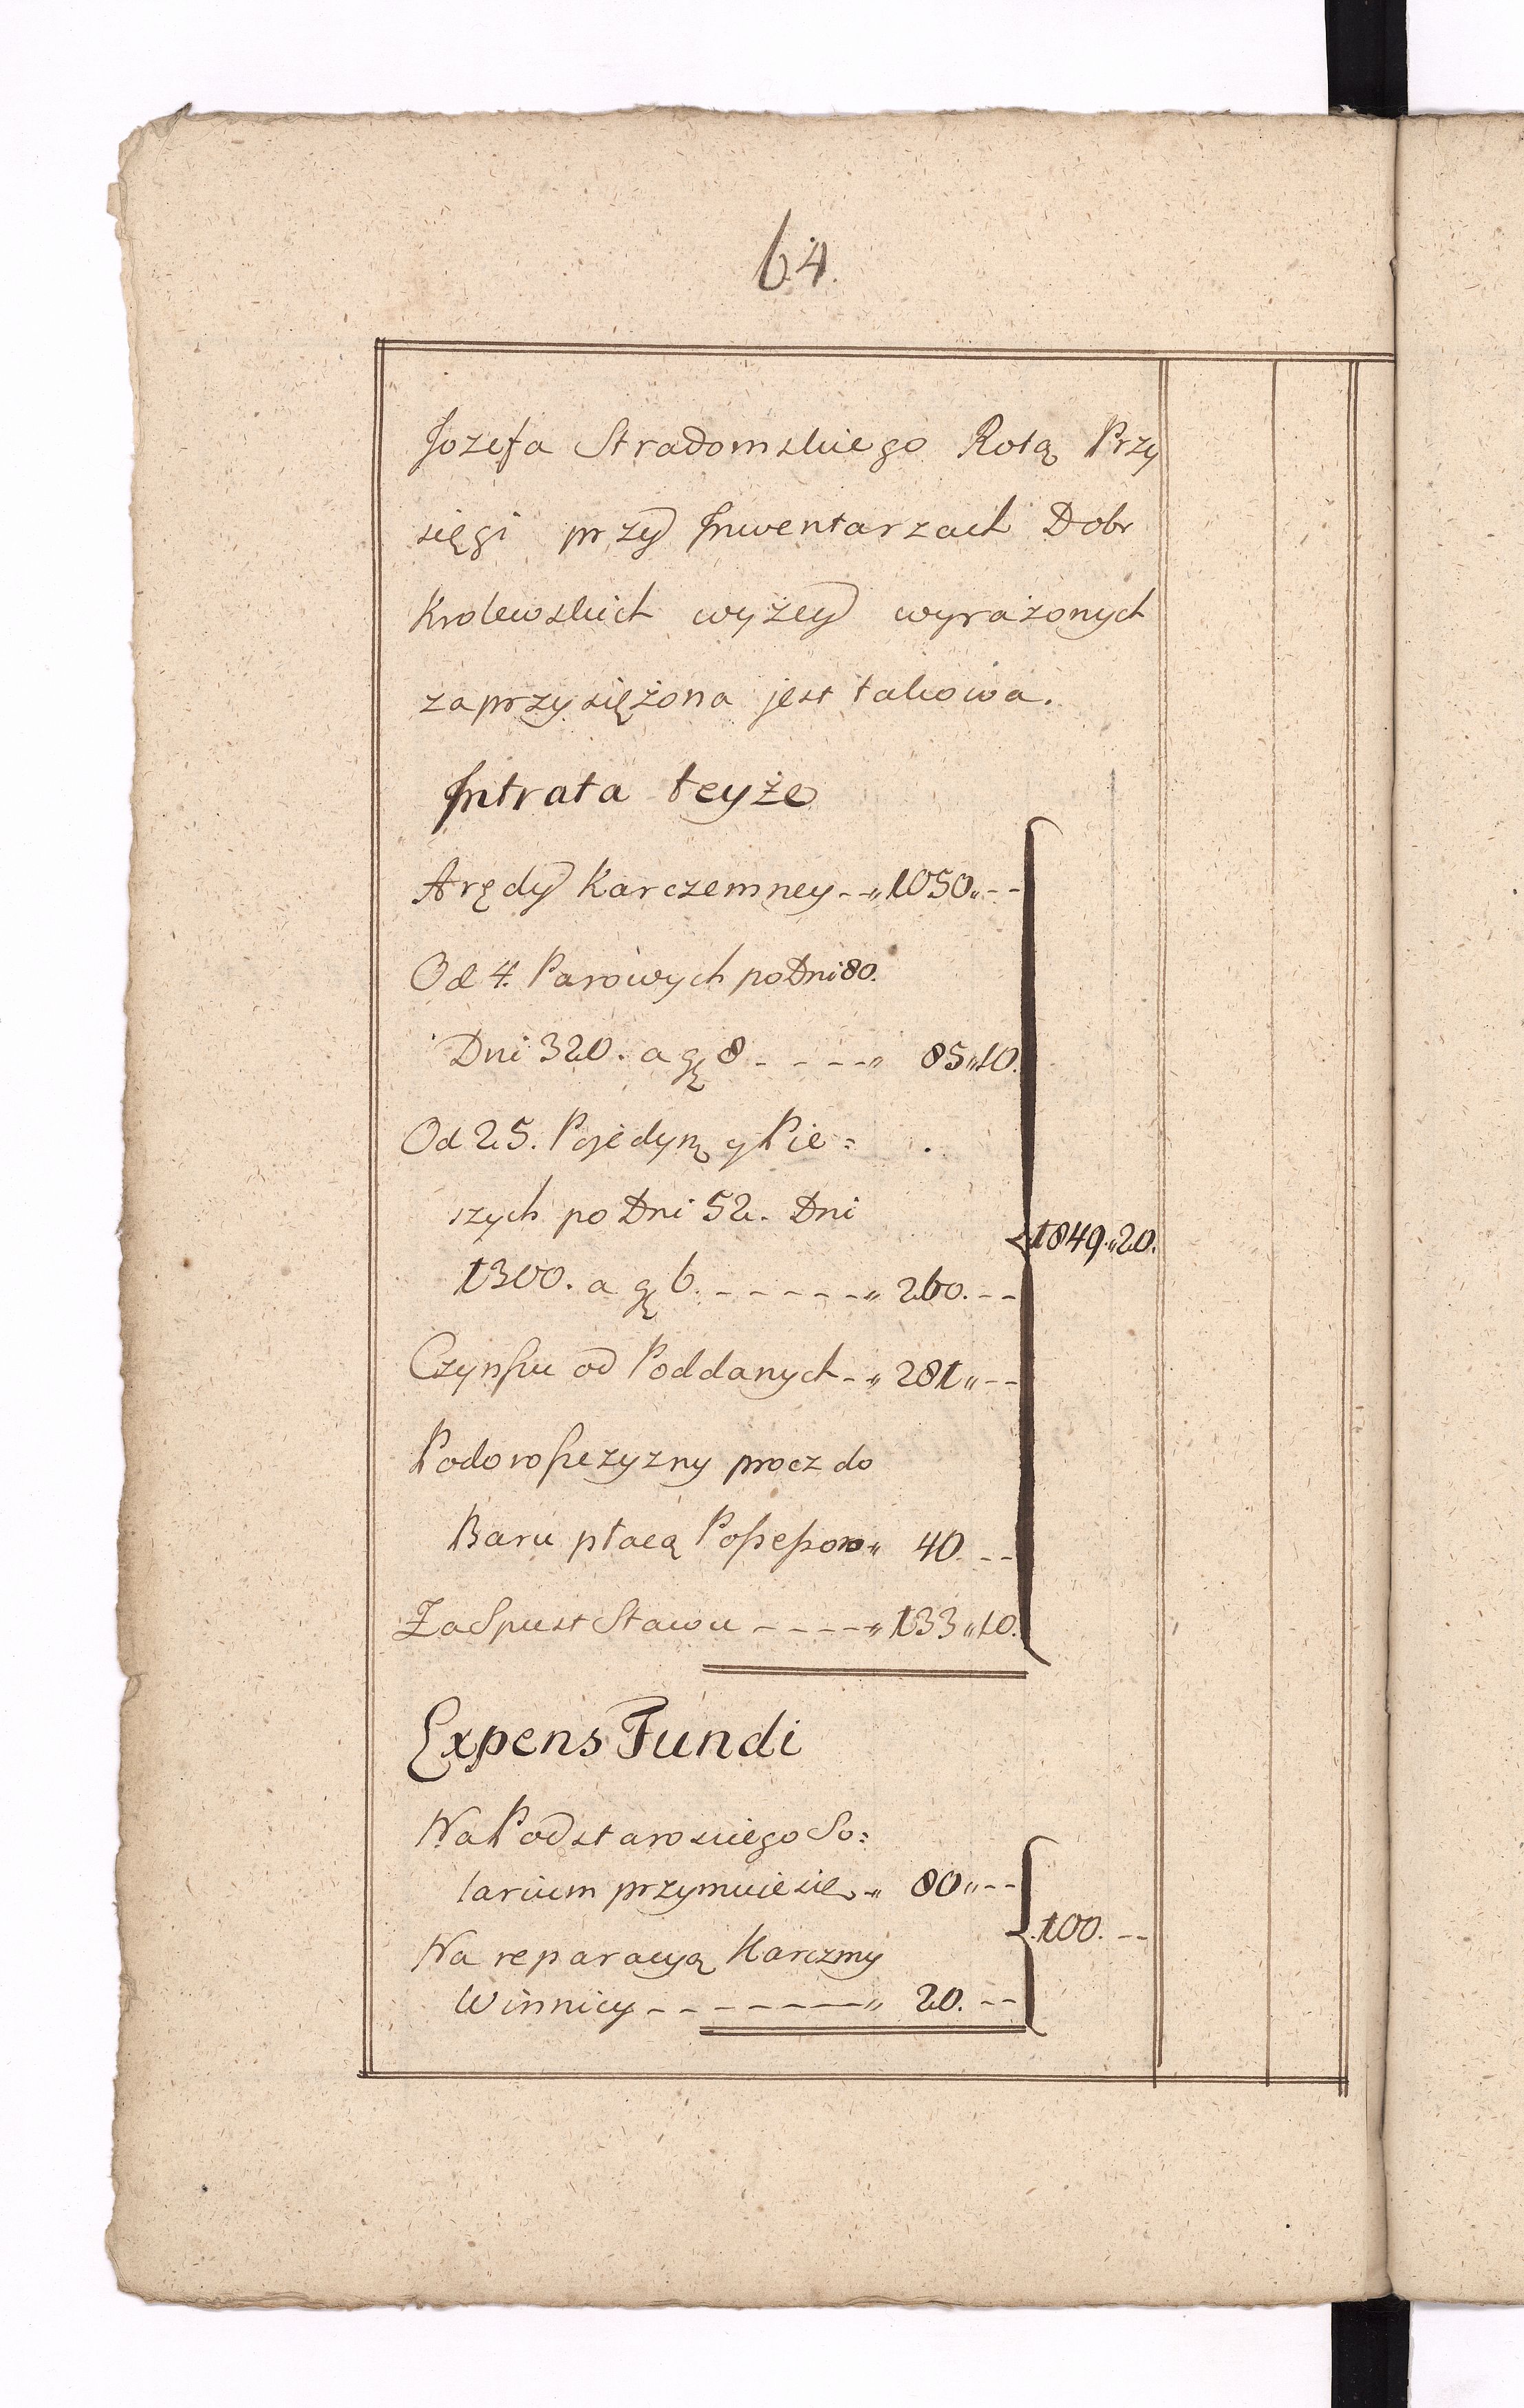 64.
Jozefa Stradomskiego Rotą Przy
sięgi przy Jnwentarzach Dobr
Krolewskich wyżey wyrażonych
zaprzysiężona jest takowa.
Jntrata teyże
Arędy Karczemney - „ 1050 „ - -
Od 4. Parowych po Dni 80.
Dni 320. a gę 8 - - - - „ 85 „ 10.
Od 25. Pojedyną y Pie =
szych po Dni 52. Dni
1300. a gę 6. - - - - - - „ 260. - -
1849. „ 20.
Czynszu od Poddanych - „ 281 „ - -
Podoroszczyzny procz do
Baru płacą „ 40. - -
Za Spust Stawu - - - - - „ 133 „ 10.
Expens Fundi
Na Podstarosciego So =
larium przymuie się - „ 80 „ - -
100. - -
Na reparacyą Karczmy
Winnicy - - - - - - - „ 20. - -